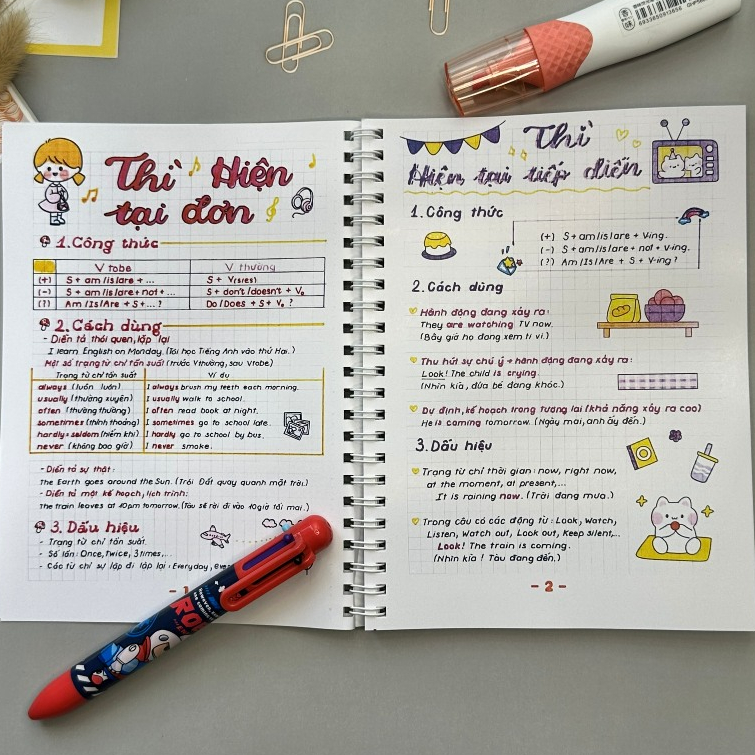 Thì Hiện
tại đơn
1. Công thức
V tobe V thường
(+) S + am/is/are + ... S + V(s/es)
(-) S + am/is/are + not + ... S + don't/doesn't + V₀
(?) Am/Is/Are + S + ... ? Do/Does + S + V₀ ?
2. Cách dùng
- Diễn tả thói quen, lặp lại
I learn English on Monday. (Tôi học Tiếng Anh vào thứ Hai.)
Một số trạng từ chỉ tần suất (trước V thường, sau V tobe)
Trạng từ chỉ tần suất Ví dụ
always (luôn luôn) I always brush my teeth each morning.
usually (thường xuyên) I usually walk to school.
often (thường thường) I often read book at night.
sometimes (thỉnh thoảng) I sometimes go to school late.
hardly = seldom (hiếm khi) I hardly go to school by bus.
never (không bao giờ) I never smoke.
- Diễn tả sự thật:
The Earth goes around the Sun. (Trái Đất quay quanh mặt trời.)
- Diễn tả một kế hoạch, lịch trình:
The train leaves at 10pm tomorrow. (Tàu sẽ rời đi vào 10 giờ tối mai.)
3. Dấu hiệu
- Trạng từ chỉ tần suất.
- Số lần: Once, Twice, 3 times,...
- Các từ chỉ sự lặp đi lặp lại: Everyday,
Thì
Hiện tại tiếp diễn
1. Công thức
(+) S + am/is/are + Ving.
(-) S + am/is/are + not + V-ing.
(?) Am/Is/Are + S + V-ing ?
2. Cách dùng
Hành động đang xảy ra:
They are watching TV now.
(Bây giờ họ đang xem ti vi.)
Thu hút sự chú ý + hành động đang xảy ra:
Look! The child is crying.
(Nhìn kìa, đứa bé đang khóc.)
Dự định, kế hoạch trong tương lai (khả năng xảy ra cao)
He is coming tomorrow. (Ngày mai, anh ấy đến.)
3. Dấu hiệu
Trạng từ chỉ thời gian: now, right now,
at the moment, at present,...
It is raining now. (Trời đang mưa.)
Trong câu có các động từ: Look, Watch,
Listen, Watch out, Look out, Keep silent,...
Look! The train is coming.
(Nhìn kìa! Tàu đang đến.)
- 2 -